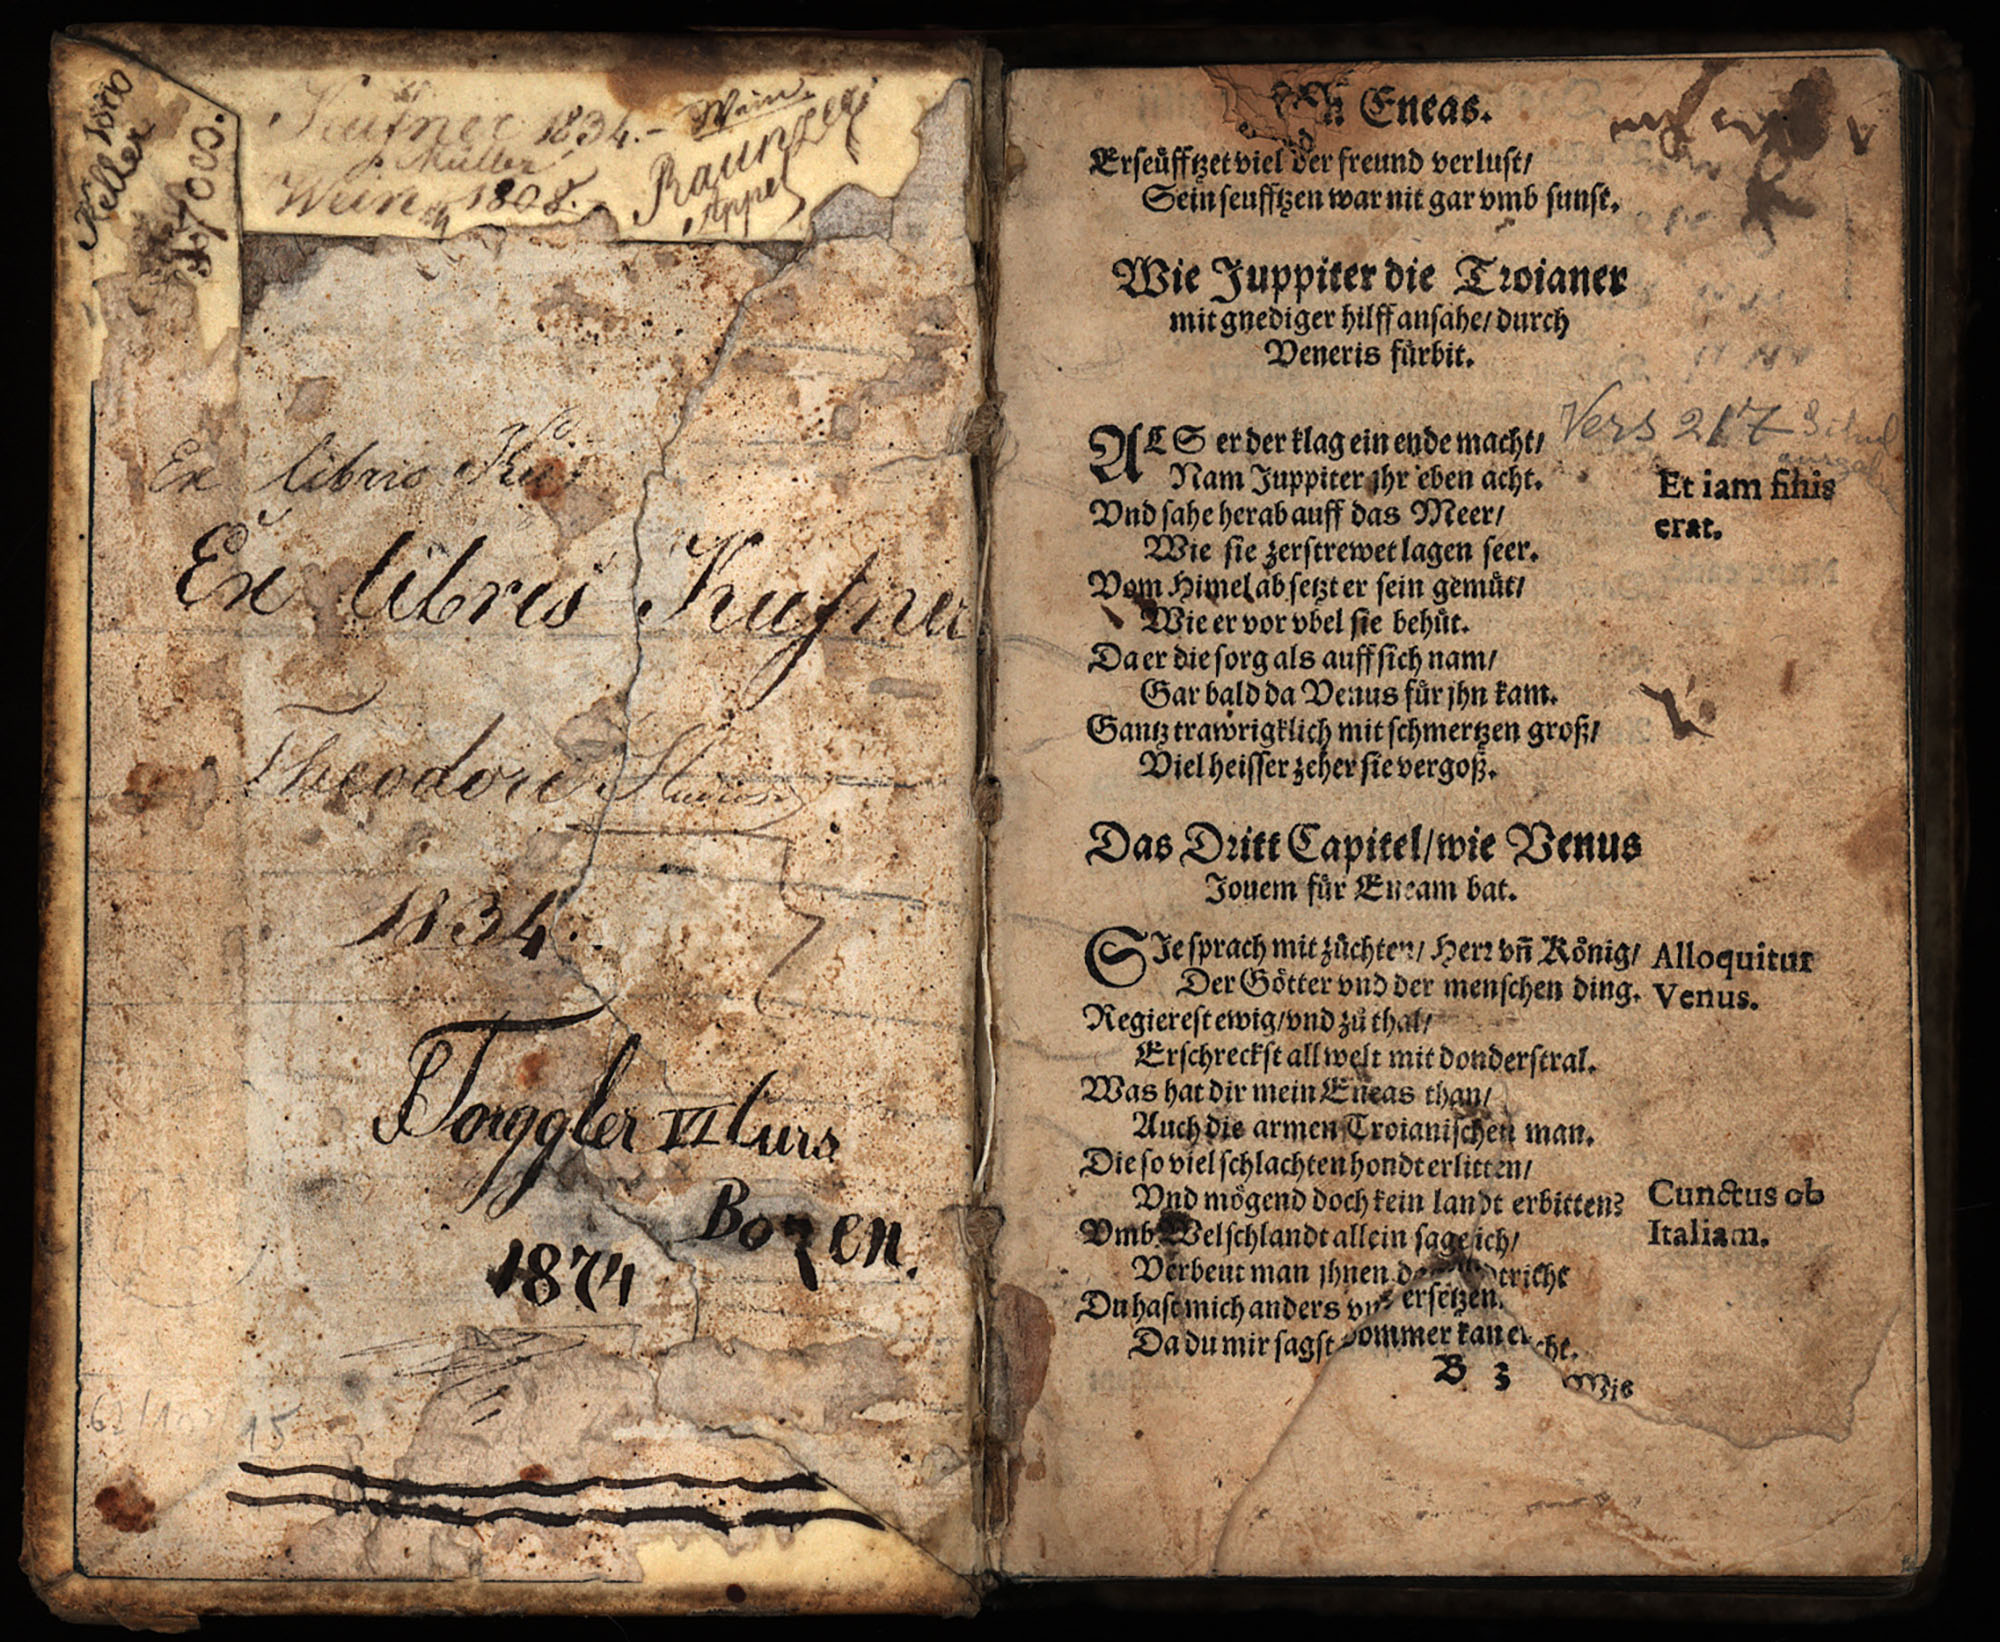 Keller
37000.
Kufner 1834.-
J. Müller
Wein 1808.
Wein.
Raunzer
Appel
Ex libris
Ex libris Kufner
Theodori
1834.
Torggler VI Curs
Bozen.
1874
15
Eneas.
Erseüfftzet viel der freund verlust/
Sein seufftzen war nit gar vmb sunst.
Wie Juppiter die Troianer
mit gnediger hilff ansahe/ durch
Veneris fürbit.
ALS er der klag ein ende macht/
Nam Juppiter jhr eben acht.
Vnd sahe herab auff das Meer/
Wie sie zerstrewet lagen seer.
Vom Himel ab setzt er sein gemüt/
Wie er vor vbel sie behüt.
Da er die sorg als auff sich nam/
Gar bald da Venus für jhn kam.
Gantz trawrigklich mit schmertzen groß/
Viel heisser zeher sie vergoß.
Vers 217
Et iam finis
erat.
Das Dritt Capitel/ wie Venus
Jouem für Eneam bat.
SJe sprach mit züchten/ Herr vñ König/
Der Götter vnd der menschen ding.
Regierest ewig/ vnd zů thal/
Erschreckst all welt mit donderstral.
Was hat dir mein Eneas than/
Auch die armen Troianischen man.
Die so viel schlachten hondt erlitten/
Vnd mögend doch kein landt erbitten?
Vmb Welschlandt allein sage ich/
Verbeut man jhnen
Du hast mich anders ersetzen.
Da du mir sagst
B 3
Wie
Alloquitur
Venus.
Cunctus ob
Italiam.